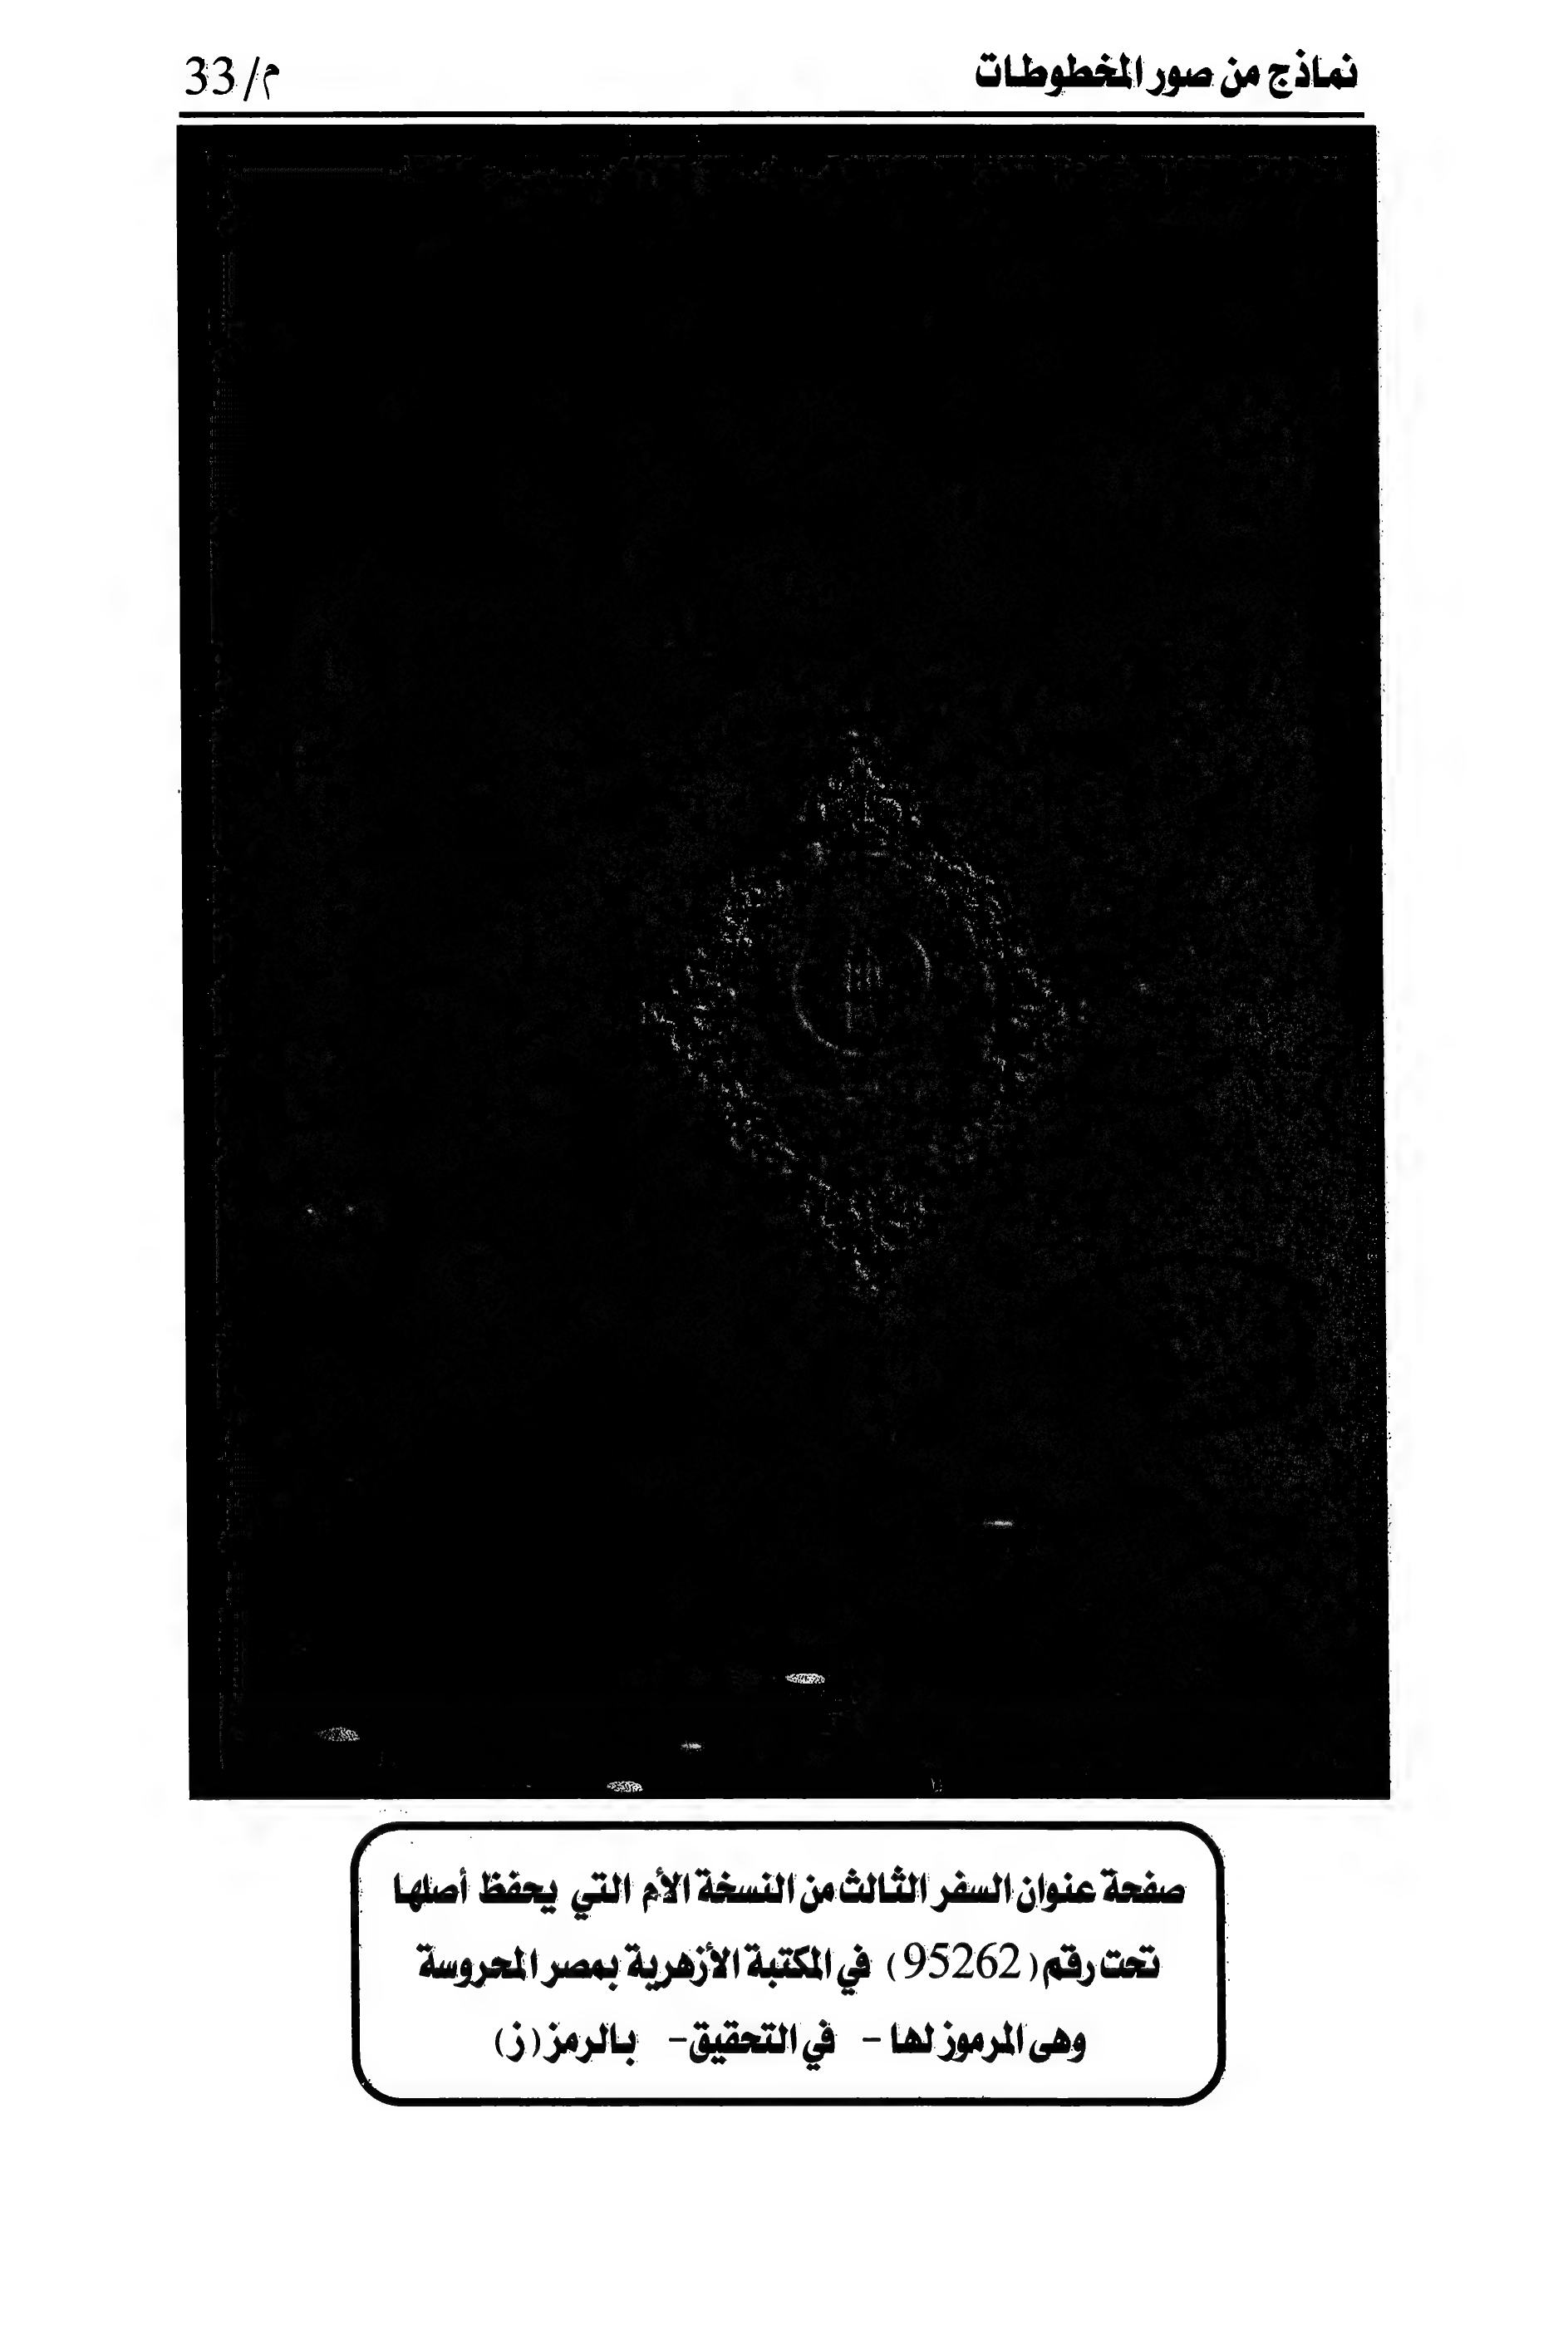 نماذج من صور المخطوطات
م/33
صفحة عنوان السفر الثالث من النسخة الأم التي يحفظ أصلها
تحت رقم (95262) في المكتبة الأزهرية بمصر المحروسة
وهى المرموز لها - في التحقيق - بالرمز (ز)